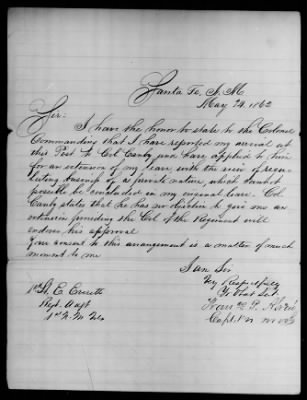 Santa Fe, N. M.
May 24, 1862
Sir:
I have the honor to state to the Colonel
Commanding that I have reported my arrival at
this Post to Col. Canby and have applied to him
for an extension of my leave with the view of regu-
lating of a private nature, which cannot
possibly be concluded in my original leave. Col.
Canby states that he has no objection to give me an
extension providing the Col. of the Regiment will
endorse his approval
Your consent to this arrangement is a matter of much
moment to me
I am Sir
Very Respectfully
Yr Obat Svt.
Capt. 1st N. M. Vols
E. Everett
Regt. Adjt
1st N. M. Vols